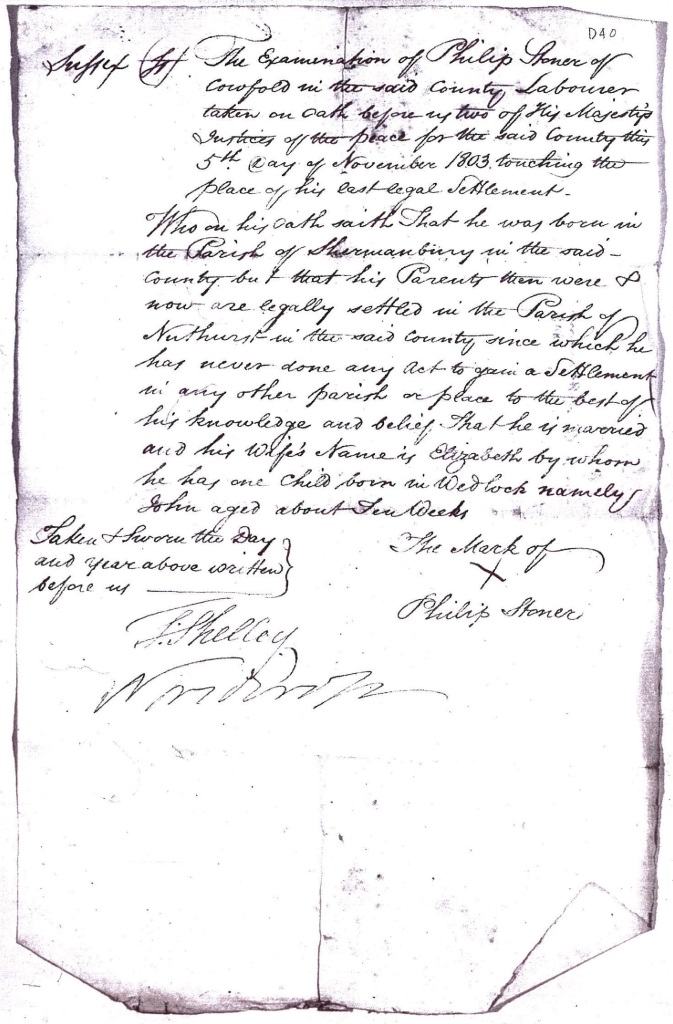 D40
Sussex (ss) The Examination of Philip Stoner of
Cowfold in the said County Labourer
taken on Oath before us two of His Majesty's
Justices of the peace for the said County this
5th Day of November 1803 touching the
place of his last legal Settlement.
Who on his Oath saith That he was born in
the Parish of Shermanbury in the said
County but that his Parents then were &
now are legally settled in the Parish of
Nuthurst in the said County since which he
has never done any Act to gain a Settlement
in any other parish or place to the best of
his knowledge and belief That he is married
and his Wife's Name is Elizabeth by whom
he has one Child born in Wedlock namely
John aged about Ten Weeks
Taken & Sworn the Day
and Year above written
before us
The Mark of
X
Philip Stoner
T: Shelley